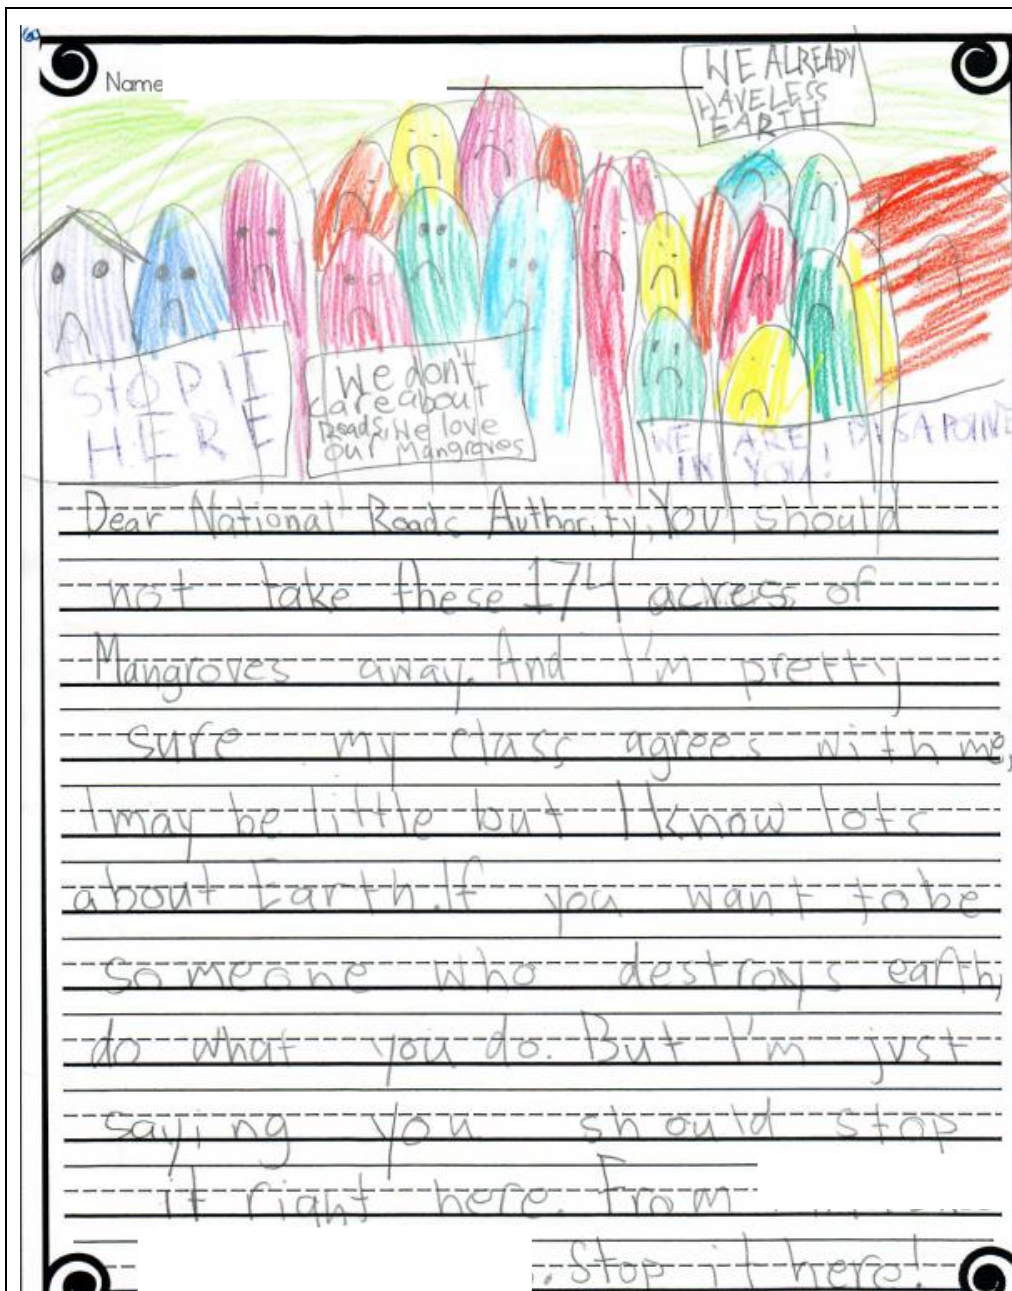 Name
WE ALREADY
HAVE LESS
EARTH
STOP IT
HERE
We don't
care about
Roads, We love
our Mangroves
WE ARE DISAPOINE
IN YOU!
Dear National Roads Authority, You should
not take these 174 acress of
Mangroves away. And I'm pretty
sure my class agrees with me,
I may be little but I know lots
about Earth. If you want to be
someone who destroys earth,
do what you do. But I'm just
saying you should stop
it right here. From
. Stop it here!